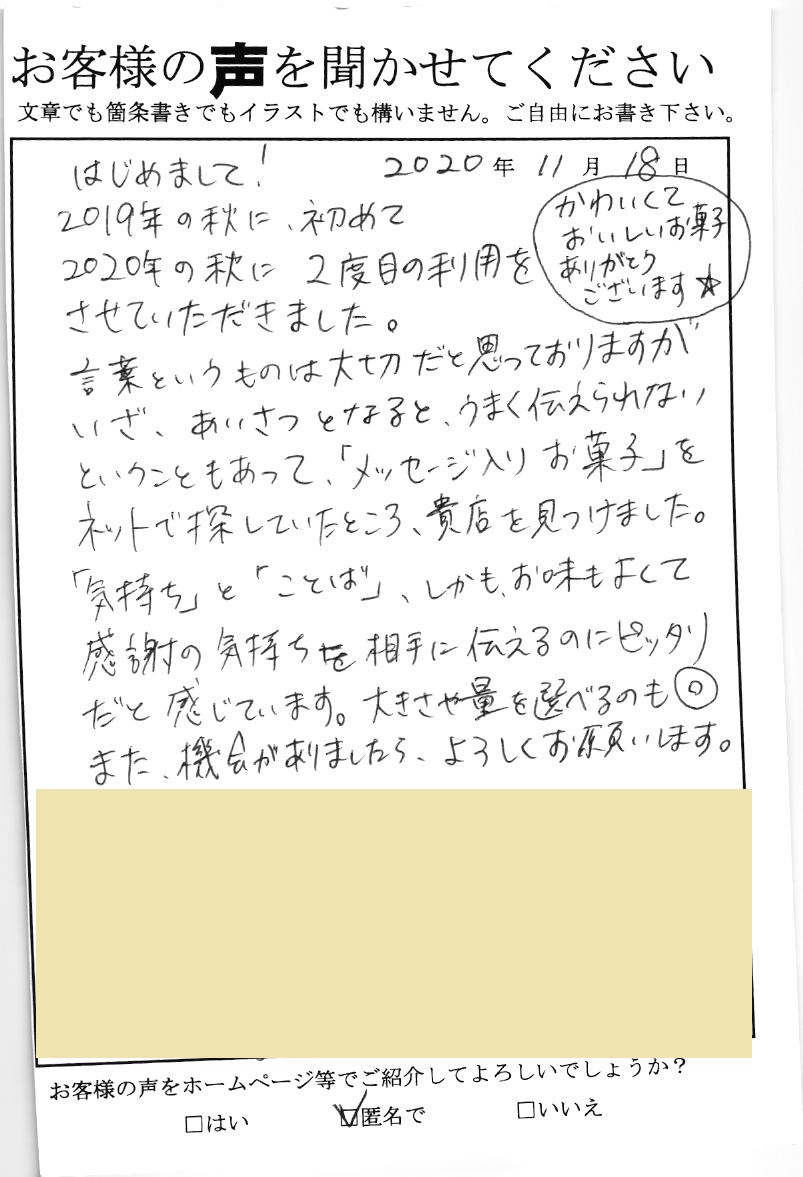 お客様の声を聞かせてください
文章でも箇条書きでもイラストでも構いません。ご自由にお書き下さい。
2020年 11月 18日
はじめまして!
2019年の秋に、初めて
2020年の秋に 2度目の利用を
させていただきました。
かわいくて
おいしいお菓子
ありがとう
ございます☆
言葉というものは大切だと思っておりますが
いざ、あいさつとなると、うまく伝えられない
ということもあって、「メッセージ入りお菓子」を
ネットで探していたところ、貴店を見つけました。
「気持ち」と「ことば」、しかも、お味もよくて
感謝の気持ちを相手に伝えるのにピッタリ
だと感じています。大きさや量を選べるのも◎
また、機会がありましたら、よろしくお願いします。
お客様の声をホームページ等でご紹介してよろしいでしょうか?
□はい ☑匿名で □いいえ